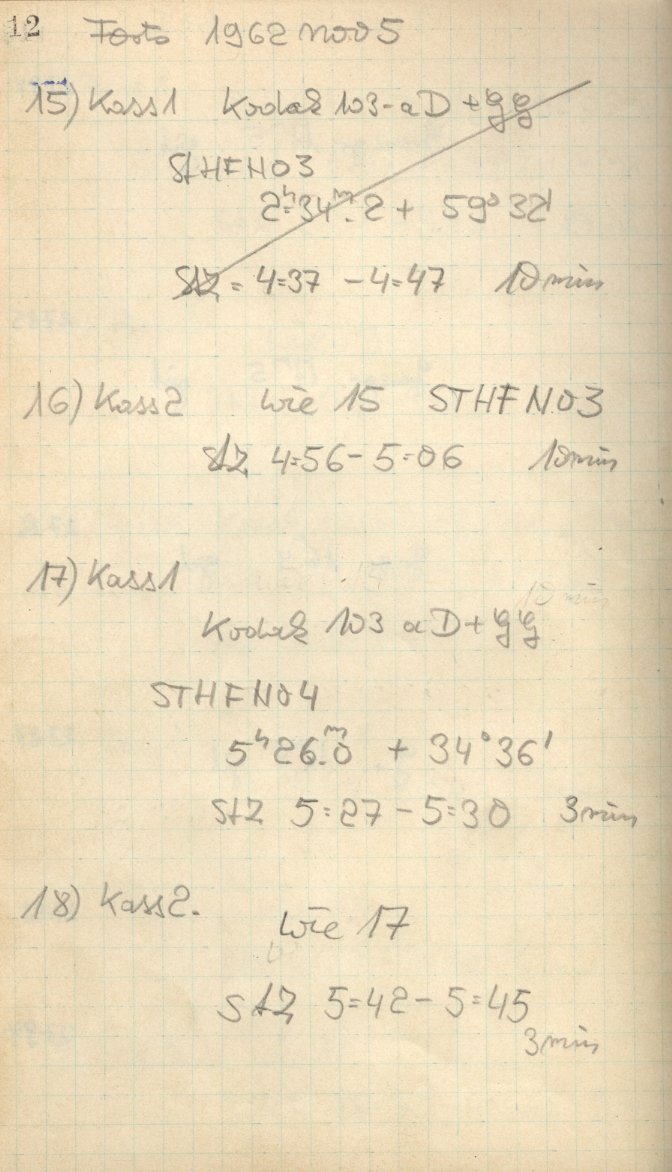 12 Forts 1962 Nov 5
15) Kass1 Kodak 103-aD + gg
StHFN03
2h34m.2 + 59°32'
StZ = 4=37 - 4=47 10 min
16) Kass2 wie 15 STHFN03
StZ 4=56 - 5=06 10 min
17) Kass1
10 min
Kodak 103 aD + gg
STHFN04
5h26m.0 + 34°36'
StZ 5=27 - 5=30 3 min
18) Kass2.
wie 17
StZ 5=42 - 5=45
3 min